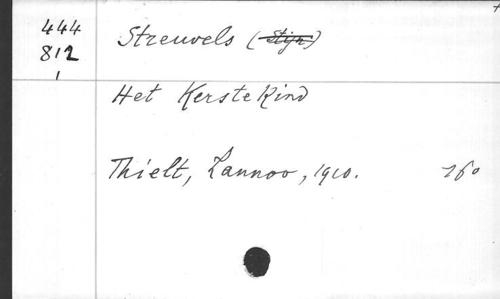 444
812
1
Streuvels (Stijn)
Het Kerstekind
Thielt, Lannoo, 1910. 16o